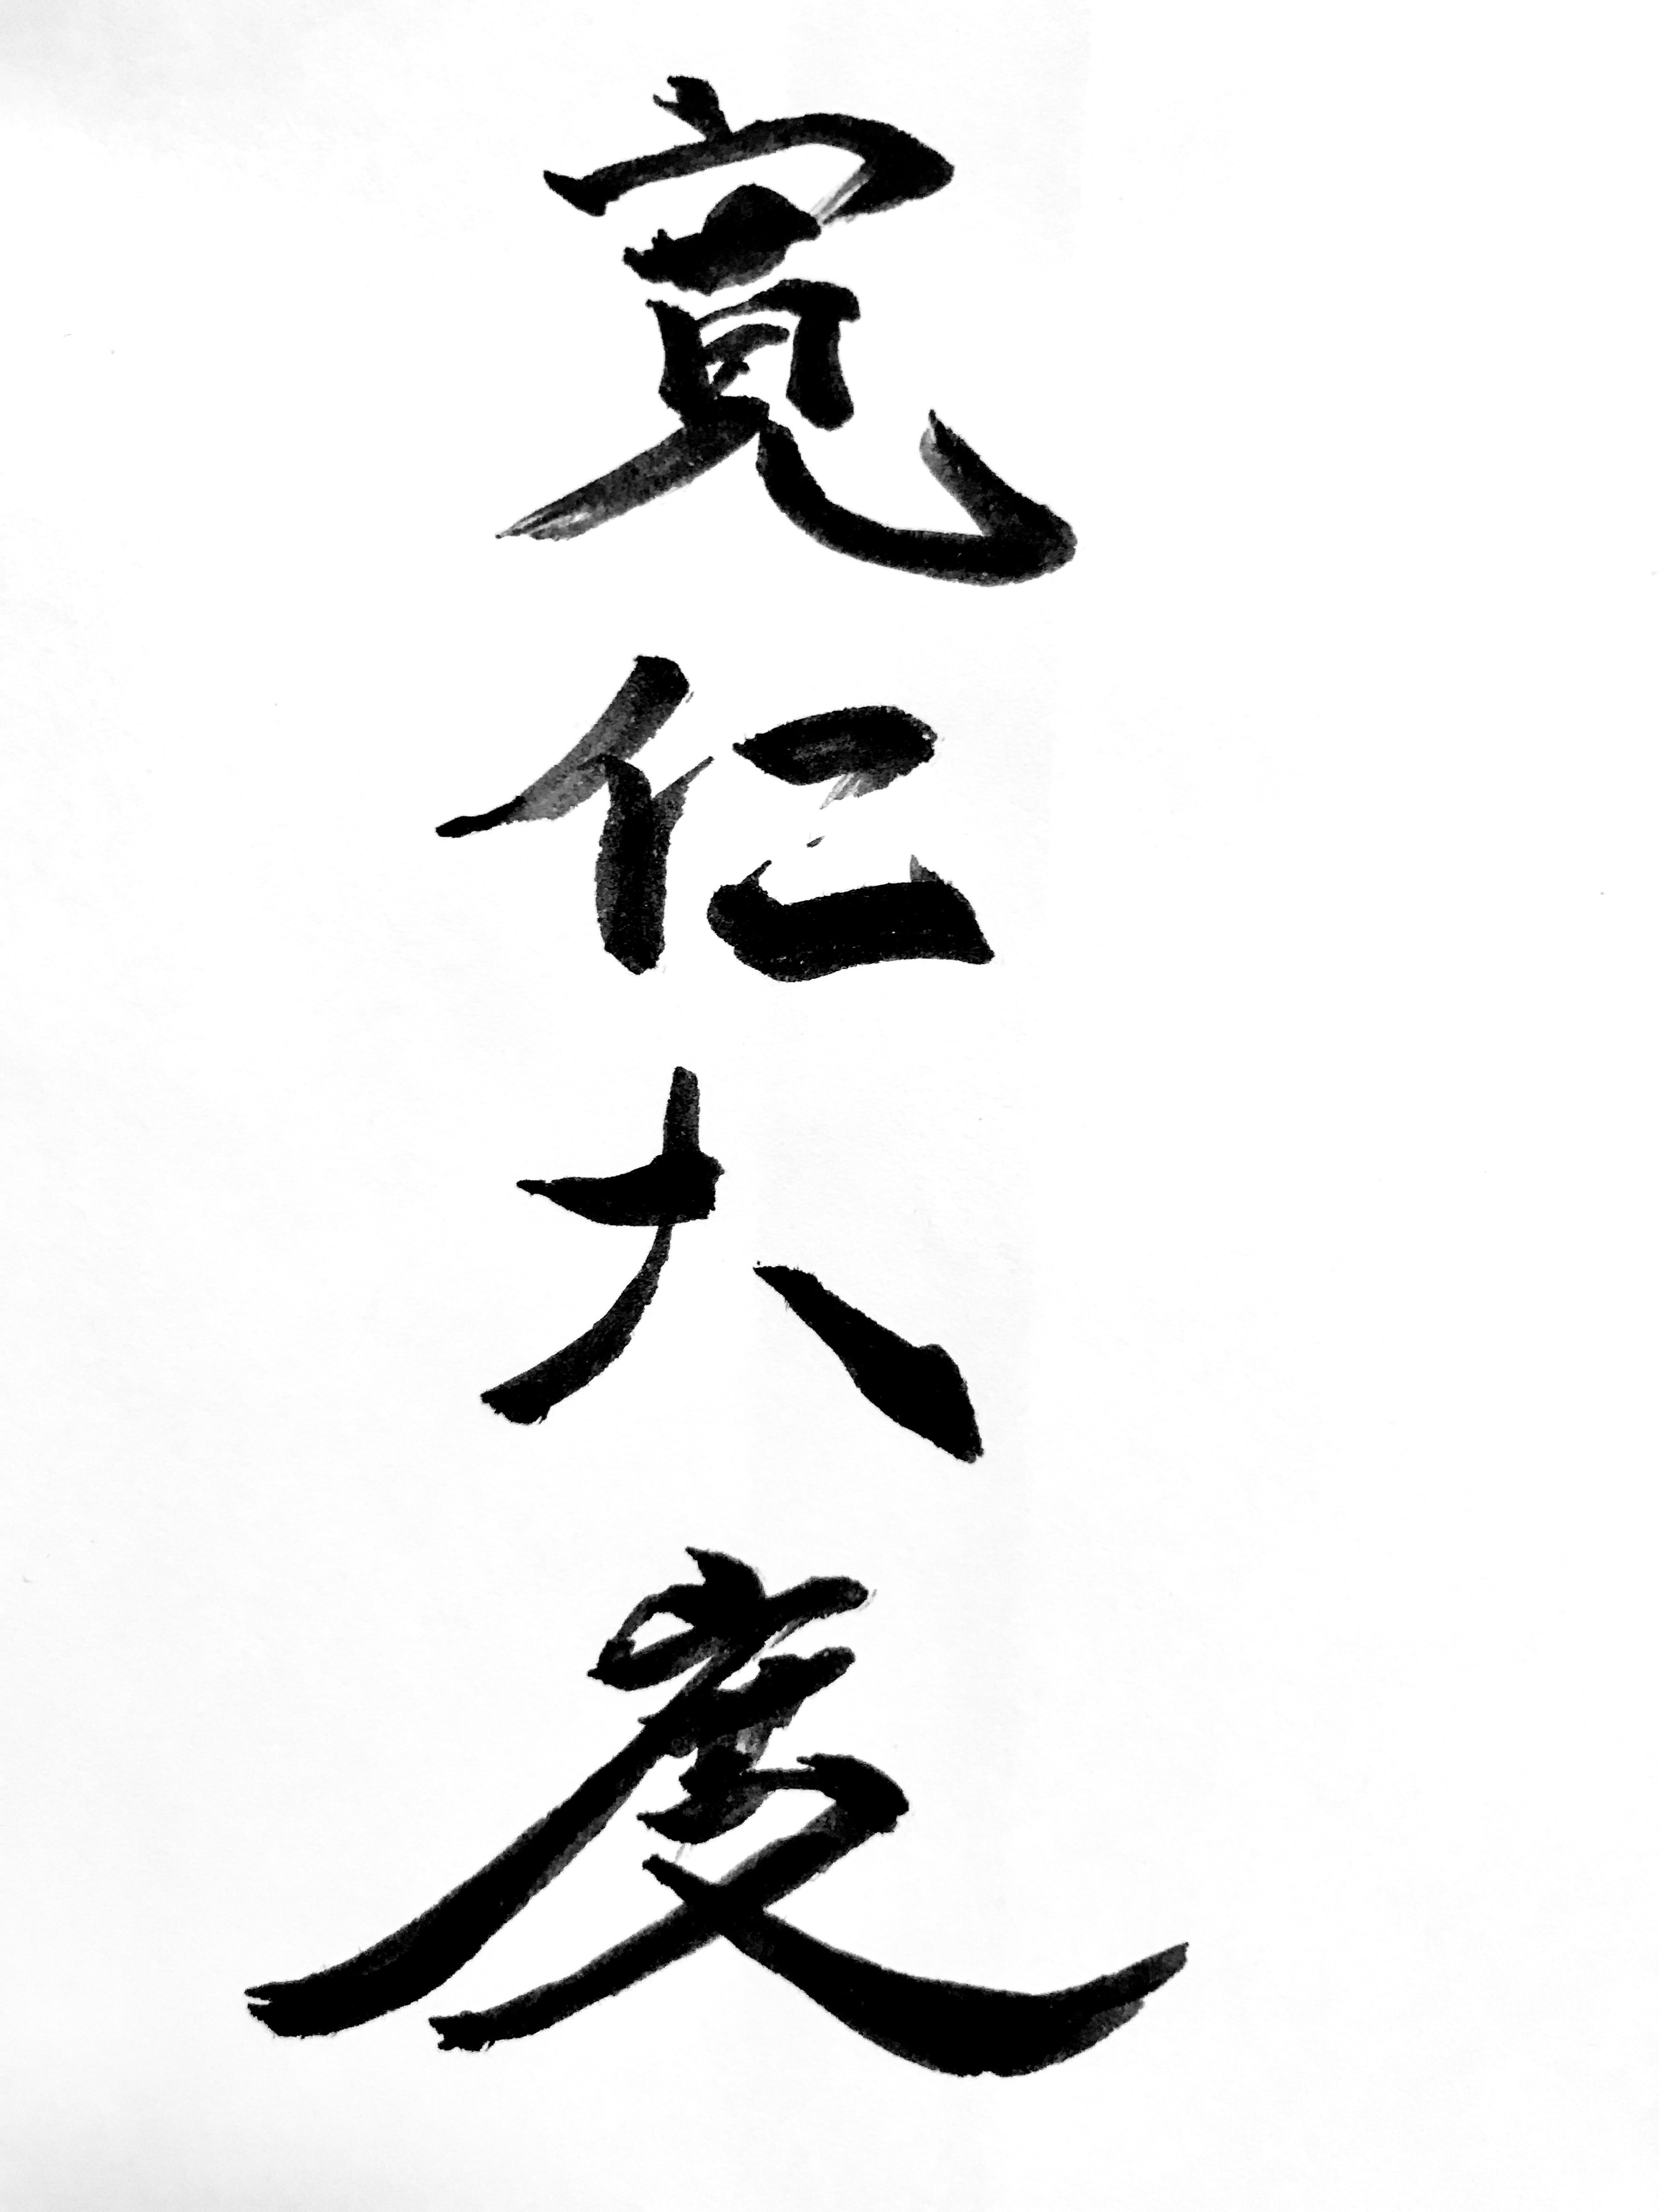 寛仁大度